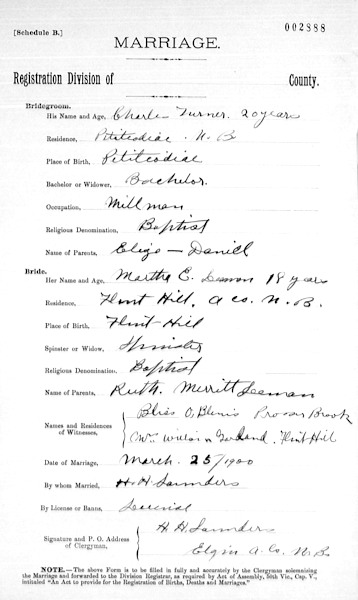 002888
[Schedule B.]
MARRIAGE.
Registration Division of County.
Bridegroom.
His Name and Age, Charles Turner. 20 years
Residence, Petitcodiac. N. B
Place of Birth, Petitcodiac
Bachelor or Widower, Bachelor.
Occupation, Millman
Religious Denomination, Baptist
Name of Parents, Eliza — Daniel
Bride.
Her Name and Age, Martha E. 18 years
Residence, Flint Hill, A Co. N. B.
Place of Birth, Flint Hill
Spinster or Widow, Spinster
Religious Denomination, Baptist
Name of Parents, Ruth. Merritt
Names and Residences of Witnesses, Prosser Brook
Flint Hill
Date of Marriage, March. 25/1900
By whom Married, H. H. Saunders
By License or Banns, License
Signature and P. O. Address of Clergyman, H. H. Saunders
Elgin A. Co. N. B.
NOTE.—The above Form is to be filled in fully and accurately by the Clergyman solemnising
the Marriage and forwarded to the Division Registrar, as required by Act of Assembly, 50th Vic., Cap. V.
intituled "An Act to provide for the Registration of Births, Deaths and Marriages."